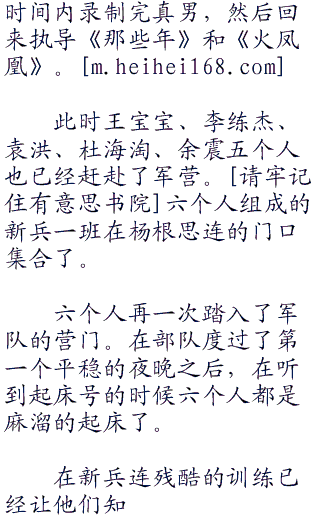 时间内录制完真男，然后回
来执导《那些年》和《火凤
凰》。[m.heihei168.com]
此时王宝宝、李练杰、
袁洪、杜海淘、余震五个人
也已经赶赴了军营。[请牢记
住有意思书院]六个人组成的
新兵一班在杨根思连的门口
集合了。
六个人再一次踏入了军
队的营门。在部队度过了第
一个平稳的夜晚之后，在听
到起床号的时候六个人都是
麻溜的起床了。
在新兵连残酷的训练已
经让他们知